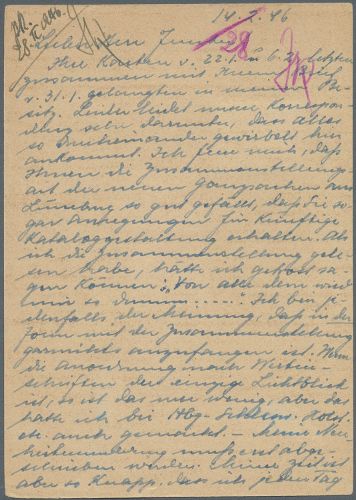 14.2.46
28
28.II.1946.
Lieber Herr
Ihre Karten v. 22.1. u. 6.2. letztere
zusammen mit Ihrem Brief
v. 31.1. gelangten in meinen Be-
sitz. Leider leidet unsere Korrespon-
denz sehr darunter, dass alles
so durcheinander gewirbelt hier
ankommt. Ich freue mich, daß
Ihnen die Zusammenstellungs-
art der neuen Ganzsachen aus
Lüneburg so gut gefällt, daß Sie so-
gar Anregungen für künftige
Kataloggestaltung erhalten. Als
ich die Zusammenstellung gele-
sen habe, hätte ich gleich sa-
gen können: „Von alle dem wird
mir so dumm.....“ Ich bin je-
denfalls der Meinung, daß in der
Form mit der Zusammenstellung
garnichts anzufangen ist. Wenn
die Anordnung nach Werten-
schriften der einzige Lichtblick
ist, so ist das nur wenig, aber das
hatte ich bei Hbg- Schlesw. Holst.
etc. auch gemacht. - Meine Neu-
heitenmeldung muß erst abge-
schrieben werden. Meine Zeit ist
aber so knapp, dass ich jeden Tag